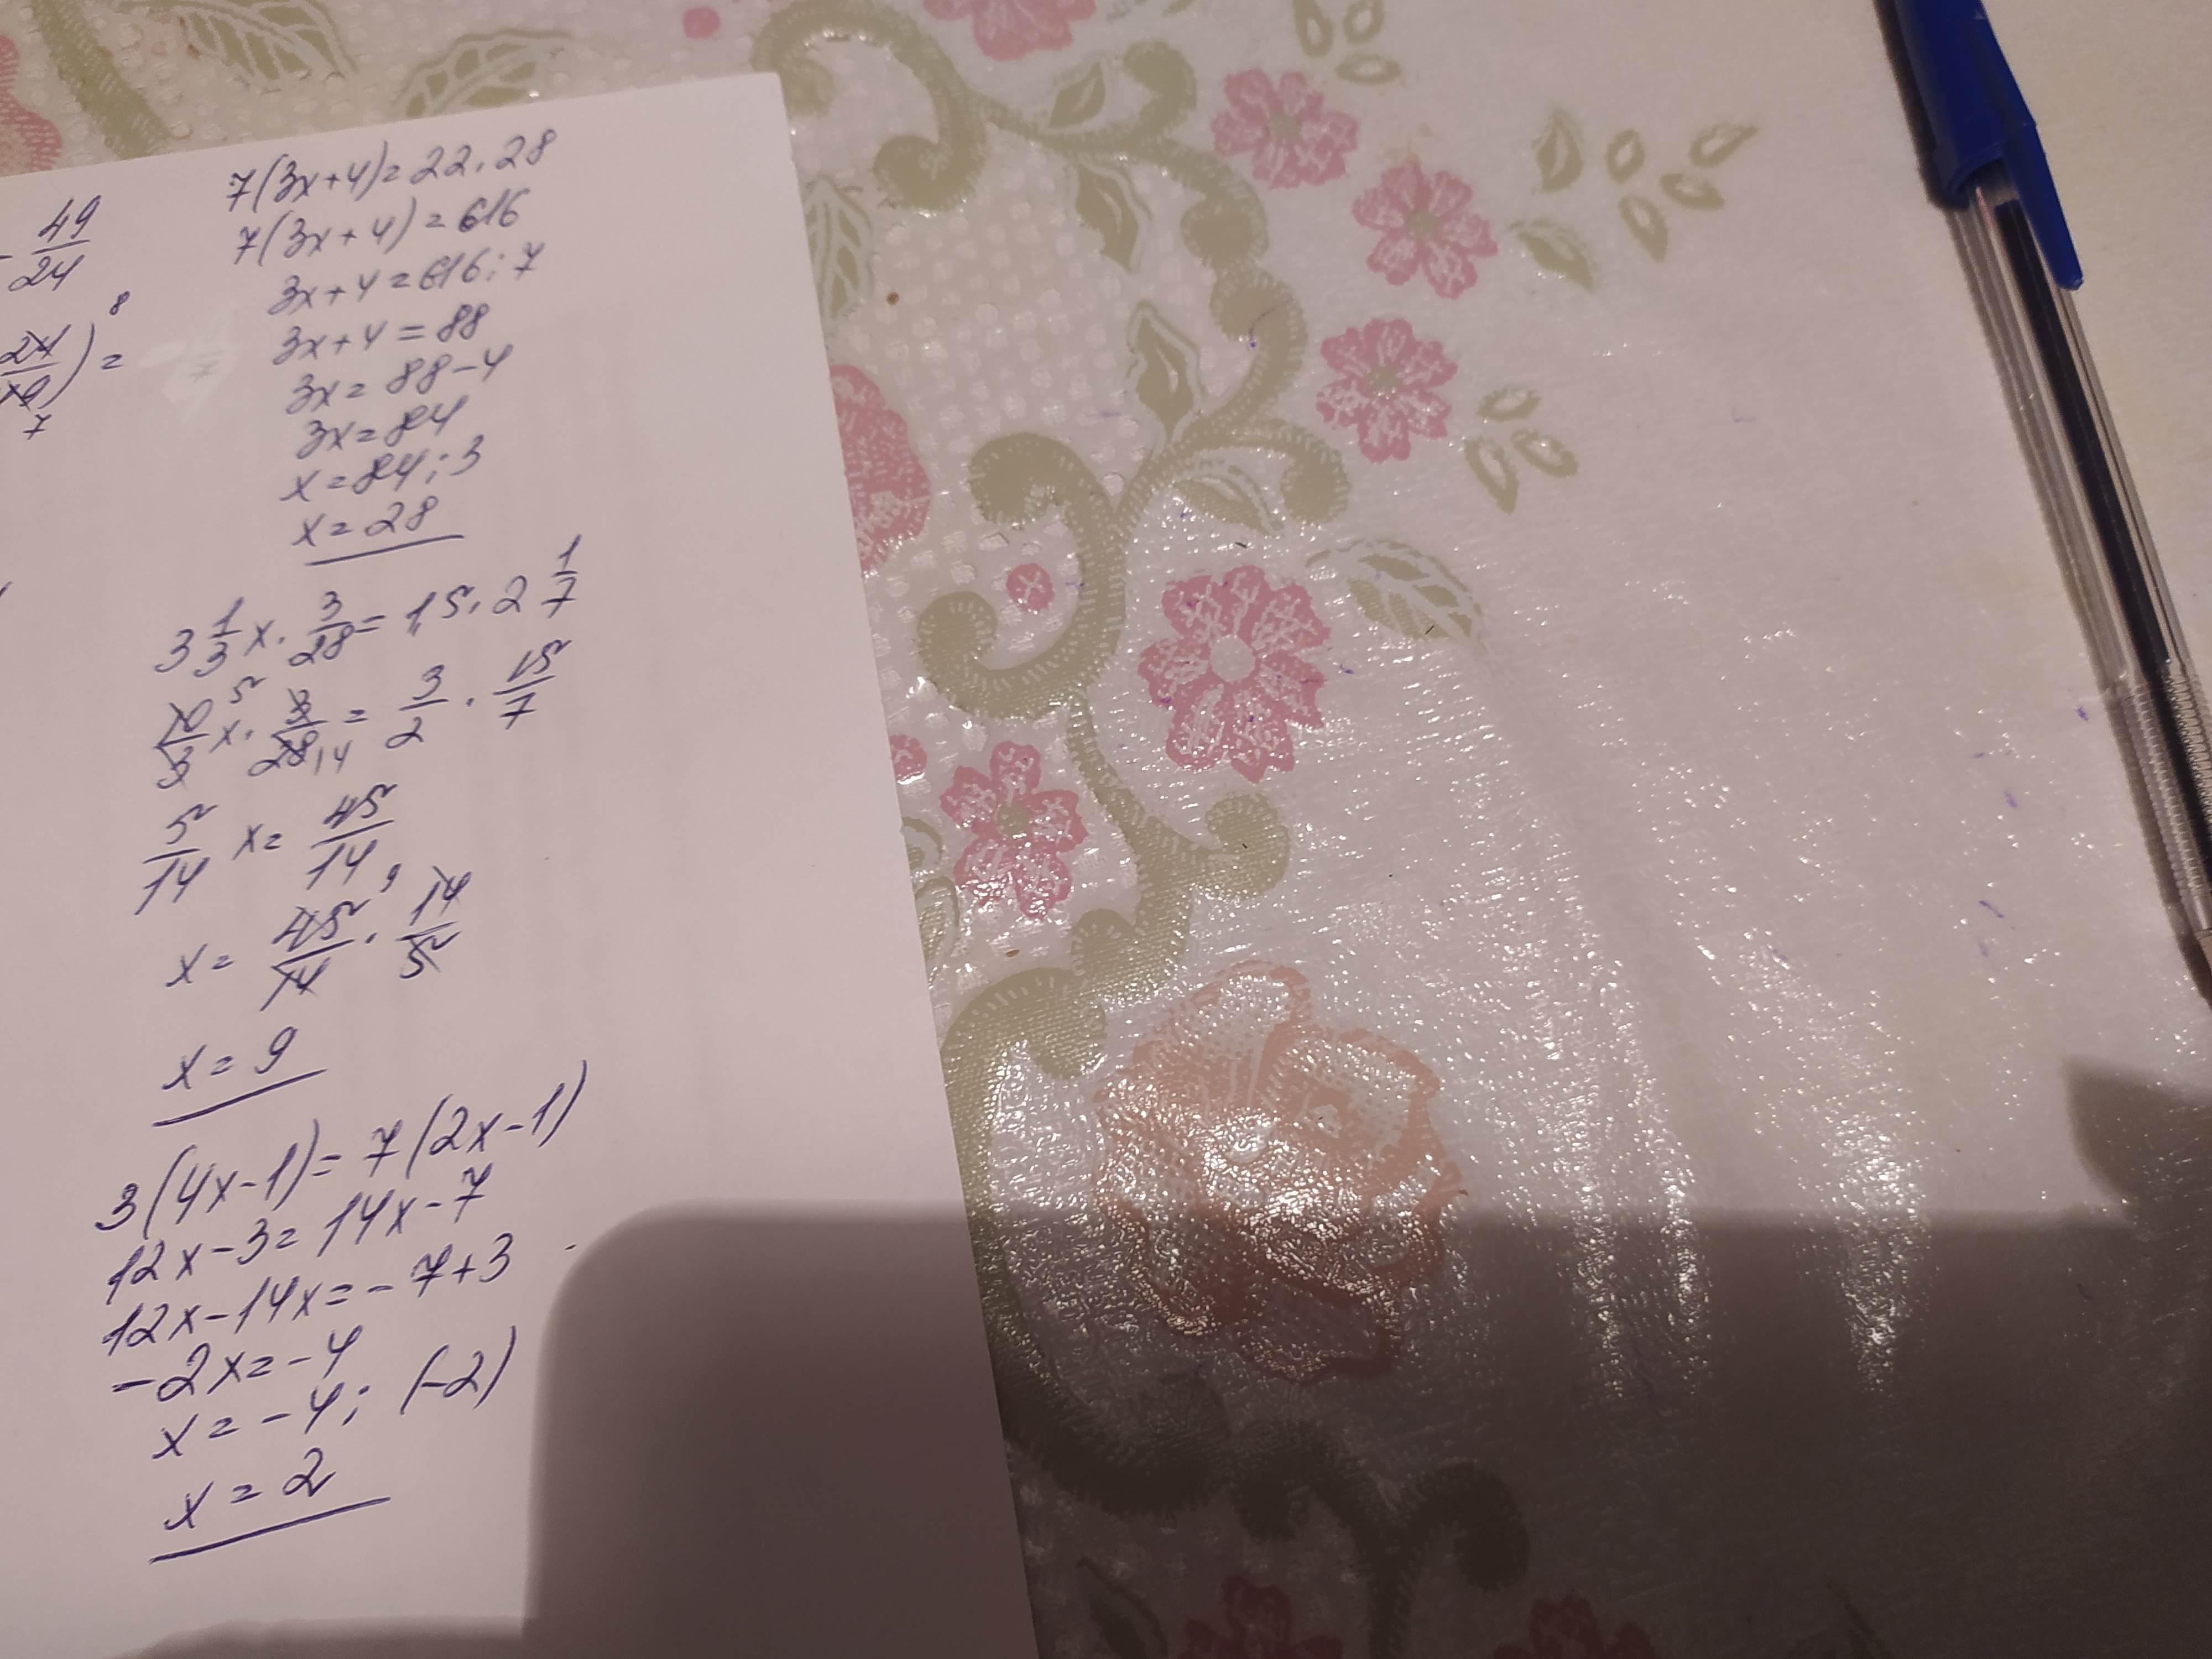 - 49/24
24/49) 8 =
7
7(3x+4)=22·28
7(3x+4)=616
3x+4=616:7
3x+4=88
3x=88-4
3x=84
x=84:3
x=28
3 1/3 x · 3/28 = 1,5 · 2 1/7
10/3 5 x · 3/28 14 = 3/2 · 15/7
5/14 x = 45/14
x = 45/14 9 · 14/5
x = 9
3(4x-1)=7(2x-1)
12x-3=14x-7
12x-14x=-7+3
-2x=-4
x=-4:(-2)
x=2